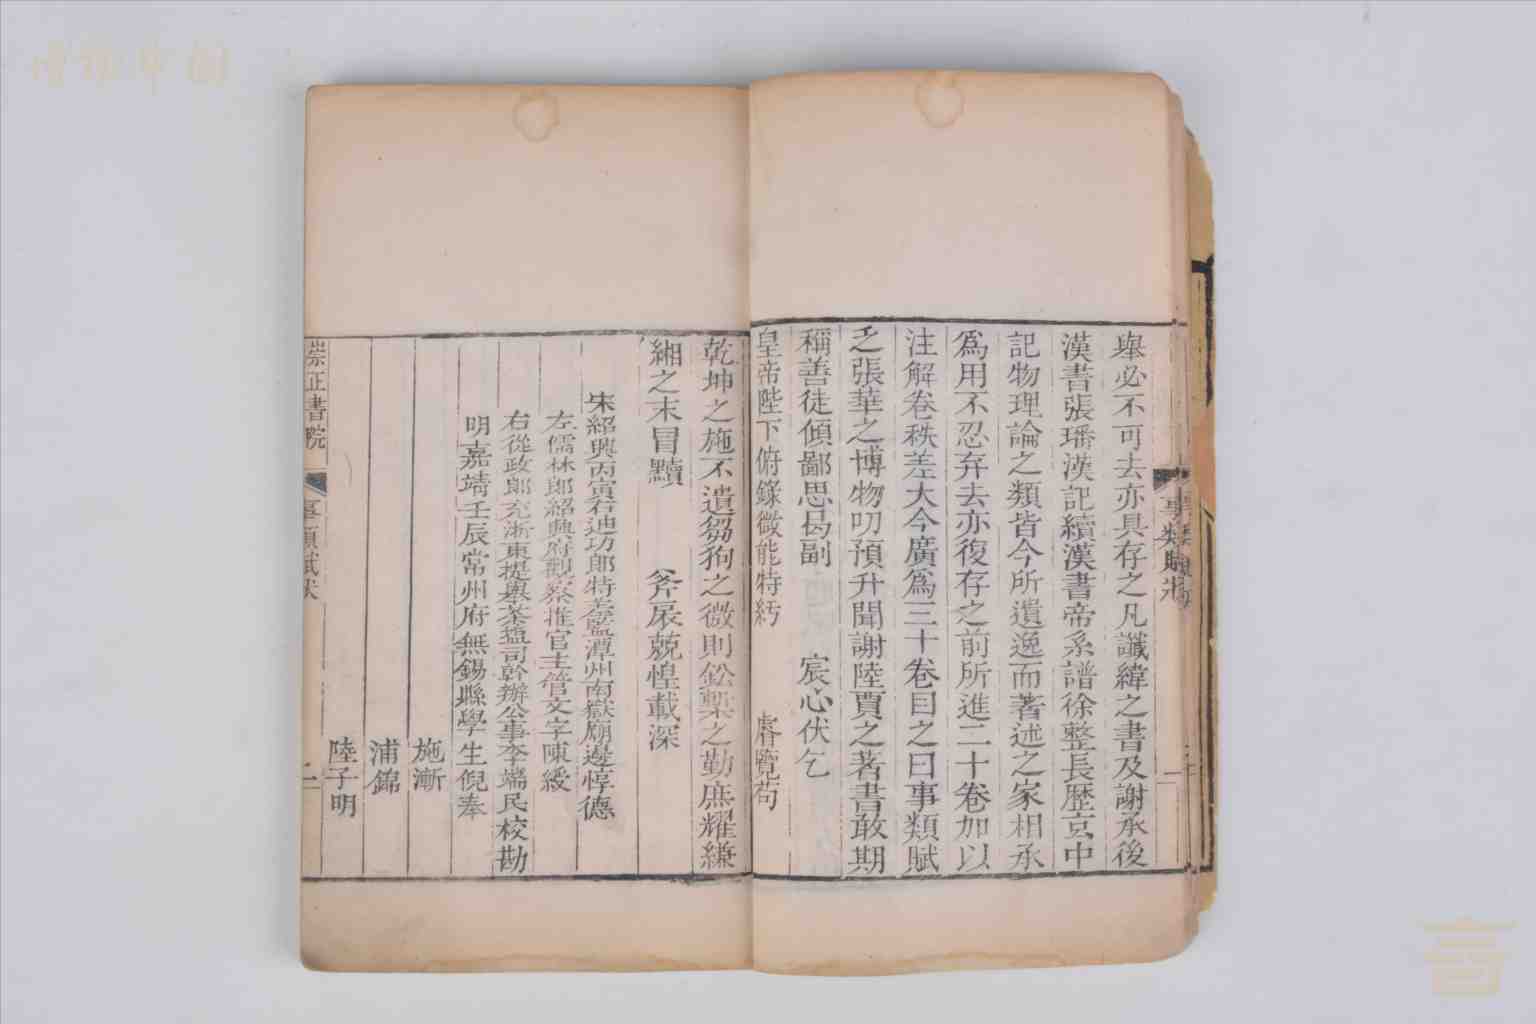 舉必不可去亦具存之凡讖緯之書及謝承後
漢書張璠漢記續漢書帝系譜徐整長歷玄中
記物理論之類皆今所遺逸而著述之家相承
爲用不忍弃去亦復存之前所進二十卷加以
注解卷秩差大今廣爲三十卷目之曰事類賦
之張華之博物叨預升聞謝陸賈之著書敢期
稱善徒傾鄙思曷副 宸心伏乞
皇帝陛下俯錄微能特紆 睿覽苟
乾坤之施不遺芻狗之微則鉛槧之勤庶耀縑
緗之末冒黷 斧扆兢惶載深
宋紹興丙寅右迪功郎特差監潭州南嶽廟邊惇德
左儒林郎紹興府觀察推官主管文字陳綬
右從政郎充浙東提舉茶鹽司幹辦公事李端民校勘
明嘉靖壬辰常州府無錫縣學生倪奉
施漸
浦錦
陸子明
崇正書院
事類賦狀
二